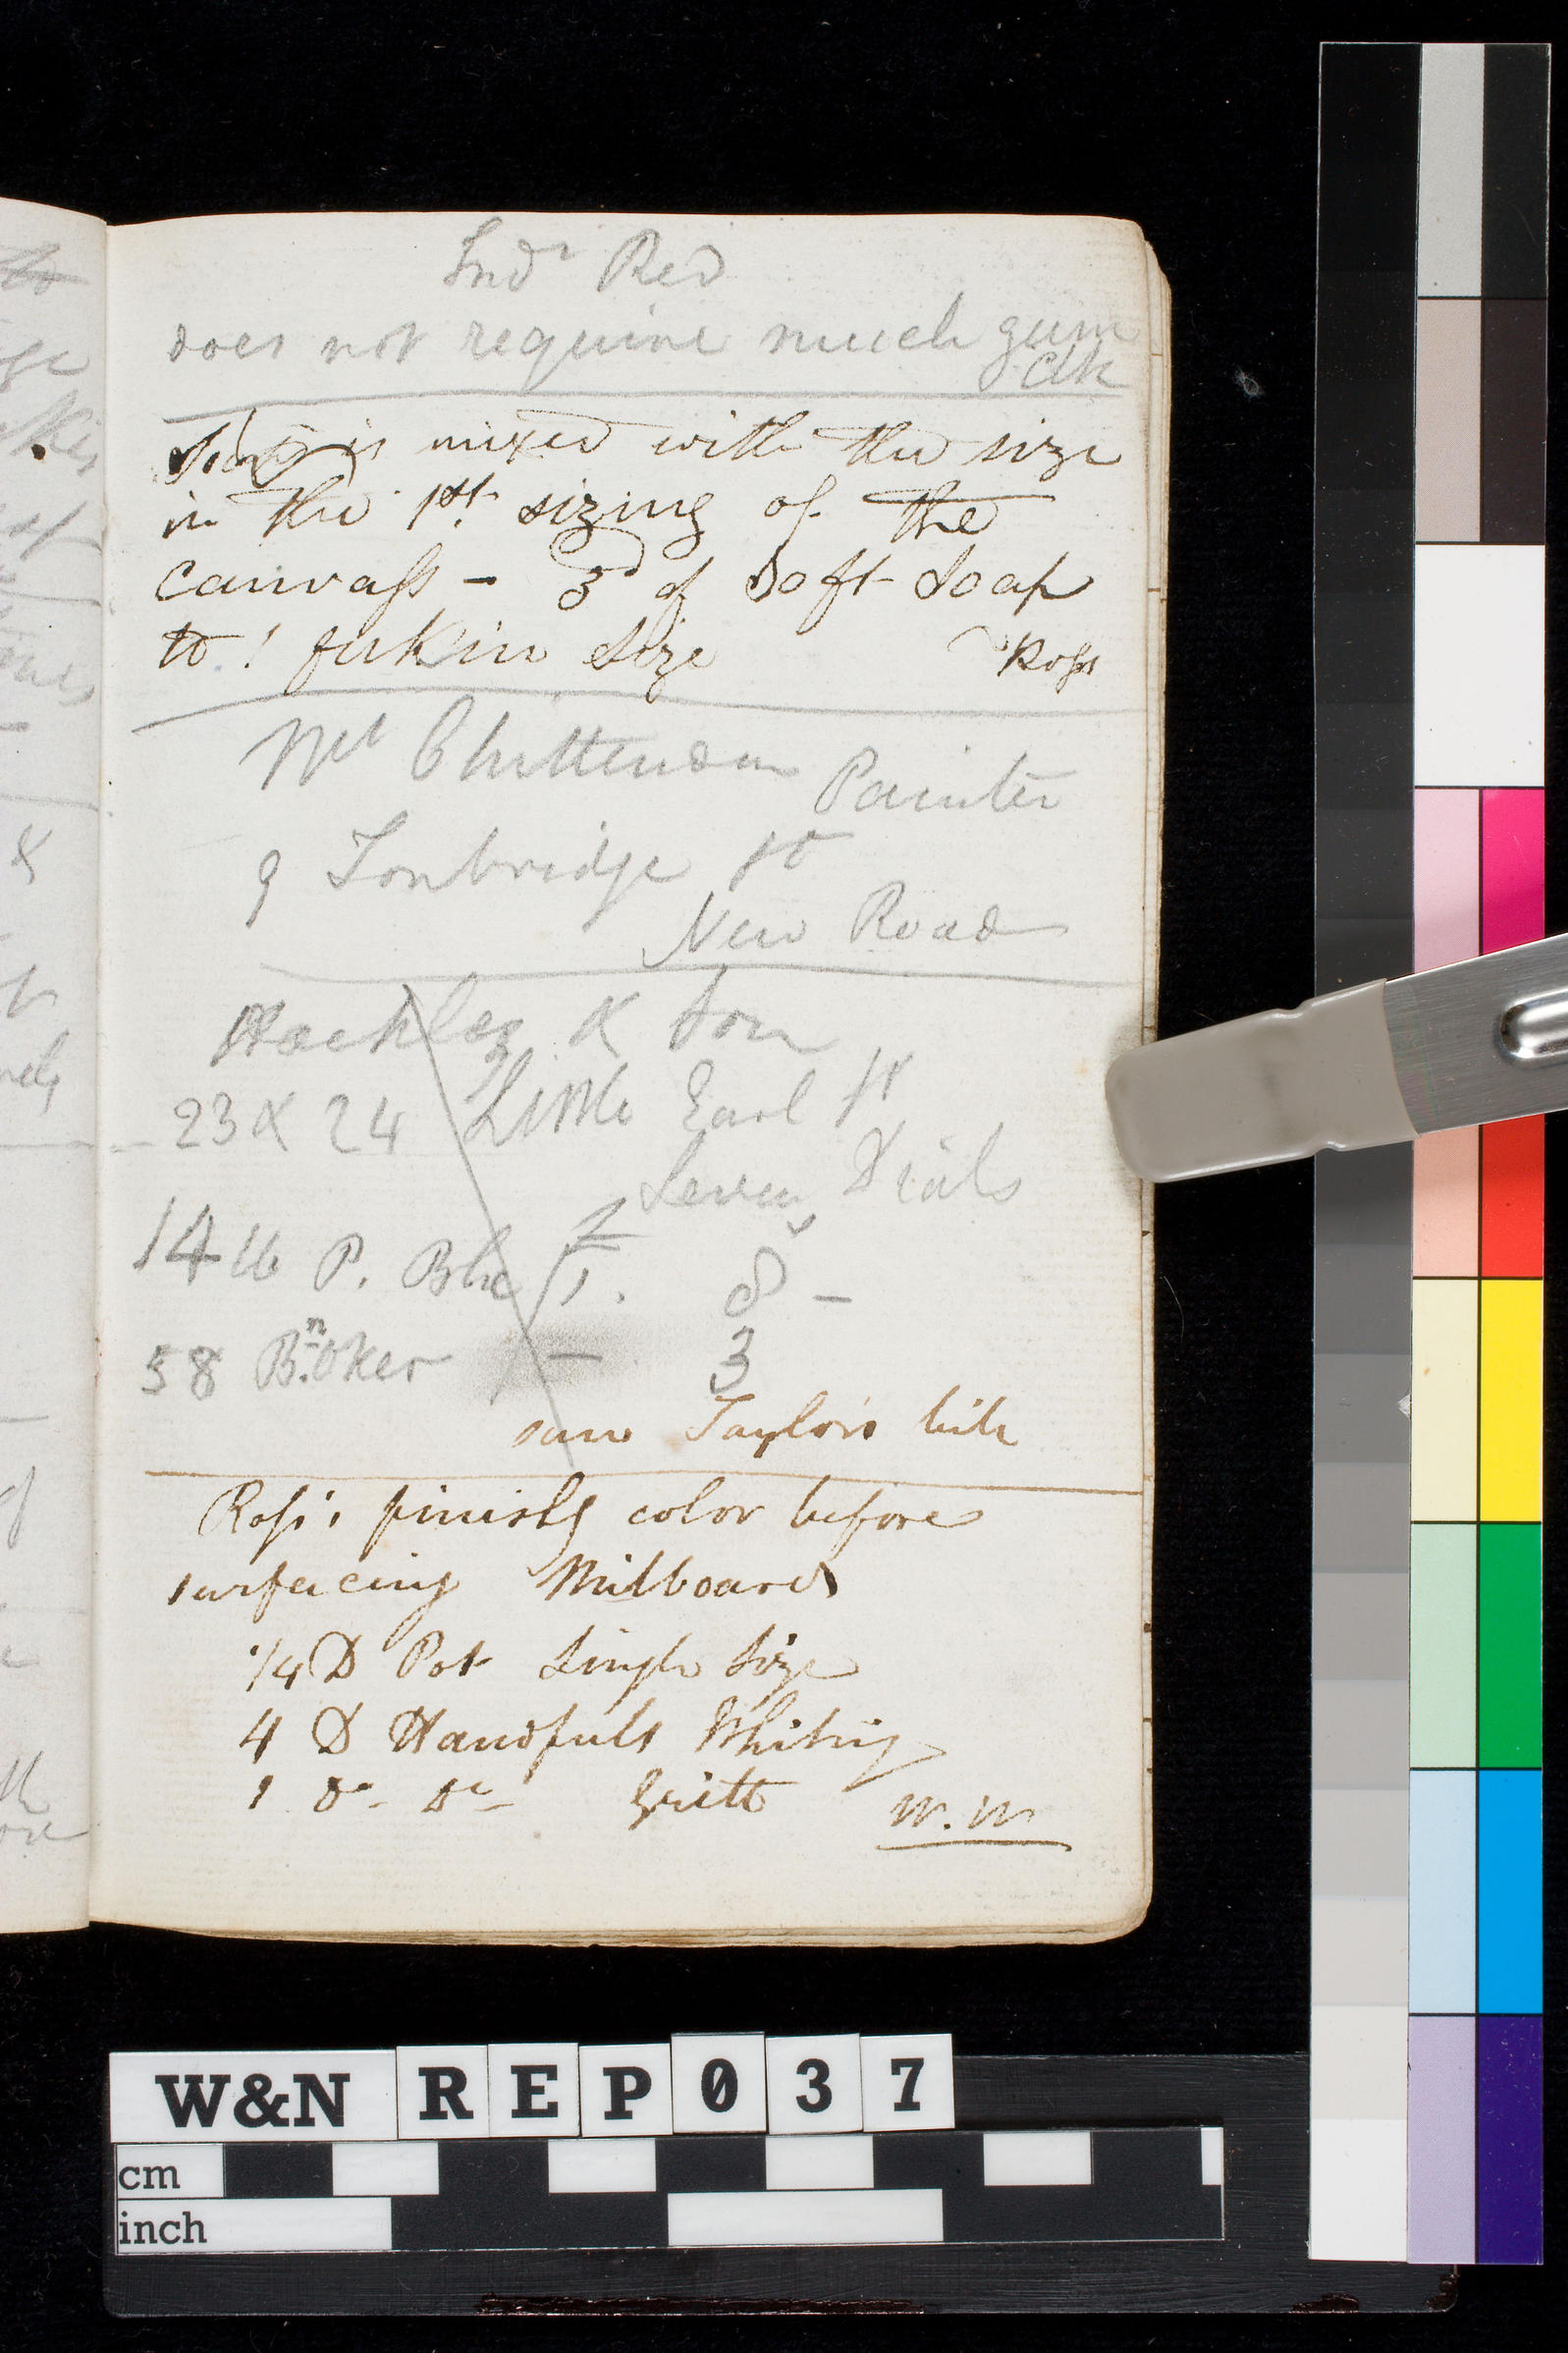 Indn Red
does not require much gum
Clk
is mixed with the size
in the 1st. sizing of the
canvass - 3d of Soft Soap
to 1 firkin Size Ross
Mr Chittenden Painter
9 Tonbridge St
New Road
& Son
23 & 24 Little Earl St
Seven Dials
14 lb P. Blue 1. 8 -
58 Bn. Oker - 3
Taylors
Ross's finishg color before
surfacing Millboards
1/4 D Pot Single Size
4 D Handfuls Whiting
1 Do. Do - Gritt W.W
W&N REP037
cm
inch